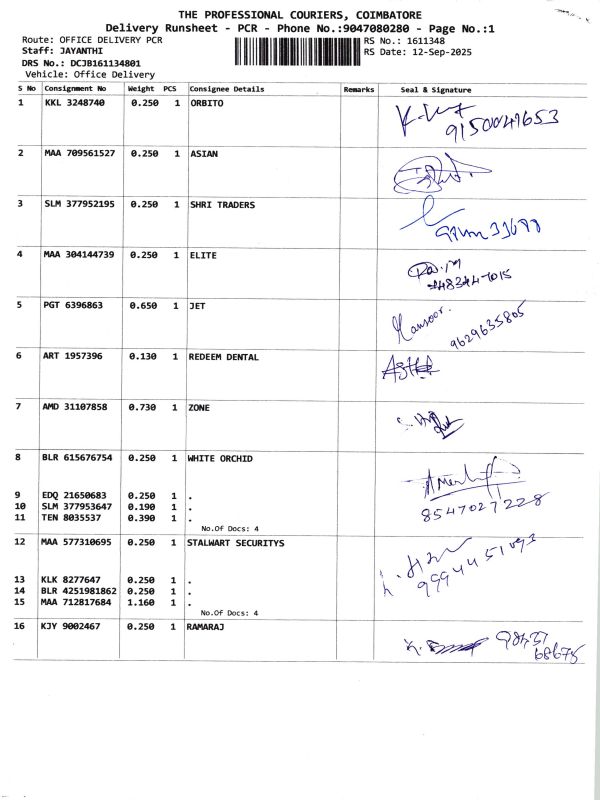 THE PROFESSIONAL COURIERS, COIMBATORE
Delivery Runsheet - PCR - Phone No.:9047080280 - Page No.:1
Route: OFFICE DELIVERY PCR RS No.: 1611348
Staff: JAYANTHI RS Date: 12-Sep-2025
DRS No.: DCJB161134801
Vehicle: Office Delivery
S No Consignment No Weight PCS Consignee Details Remarks Seal & Signature
1 KKL 3248740 0.250 1 ORBITO
9150041653
2 MAA 709561527 0.250 1 ASIAN
3 SLM 377952195 0.250 1 SHRI TRADERS
4 MAA 304144739 0.250 1 ELITE
5 PGT 6396863 0.650 1 JET
Mansoor.
9629635805
6 ART 1957396 0.130 1 REDEEM DENTAL
7 AMD 31107858 0.730 1 ZONE
8 BLR 615676754 0.250 1 WHITE ORCHID
9 EDQ 21650683 0.250 1 .
8547027228
10 SLM 377953647 0.190 1 .
11 TEN 8035537 0.390 1 .
No.Of Docs: 4
12 MAA 577310695 0.250 1 STALWART SECURITYS
9994451093
13 KLK 8277647 0.250 1 .
14 BLR 4251981862 0.250 1 .
15 MAA 712817684 1.160 1 .
No.Of Docs: 4
16 KJY 9002467 0.250 1 RAMARAJ
68675